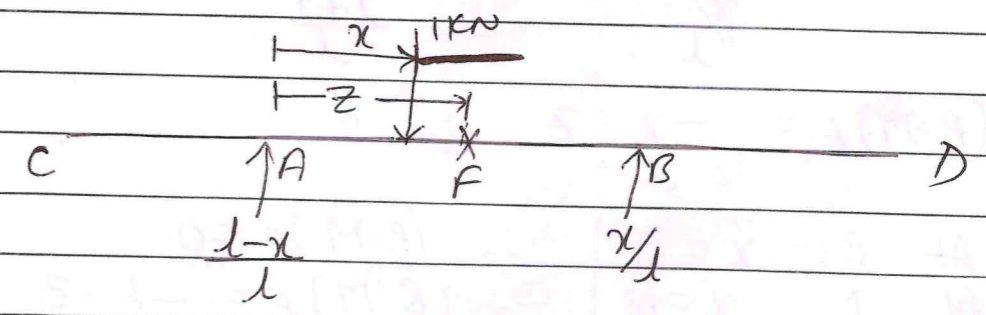 x 1KN
Z
C A F B D
l-x/l x/l